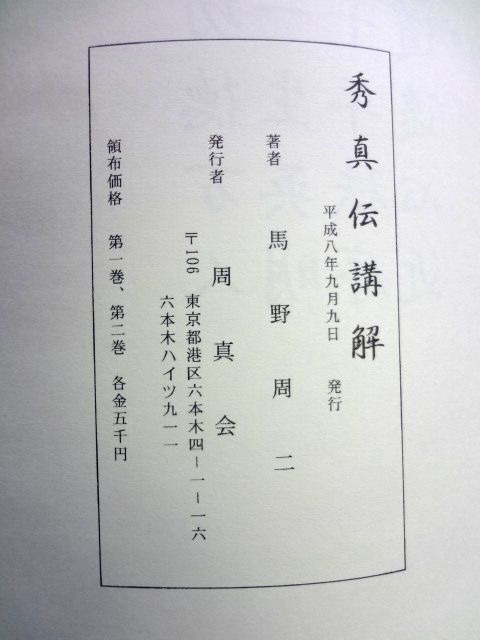 秀真伝講解
平成八年九月九日　発行
著者　馬野周二
発行者　周真会
〒106　東京都港区六本木四ー一ー一六
六本木ハイツ九一一
領布価格　第一巻、第二巻　各金五千円